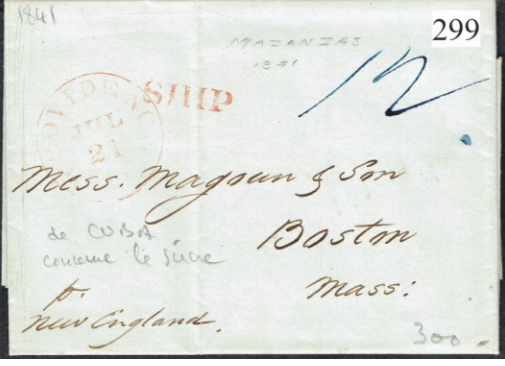 1841
299
MAZANZAS
1841
12
SHIP
JUL
21
Mess. Magoun & Son
Boston
Mass:
de CUBA
concerne le sucre
p.
New England.
300